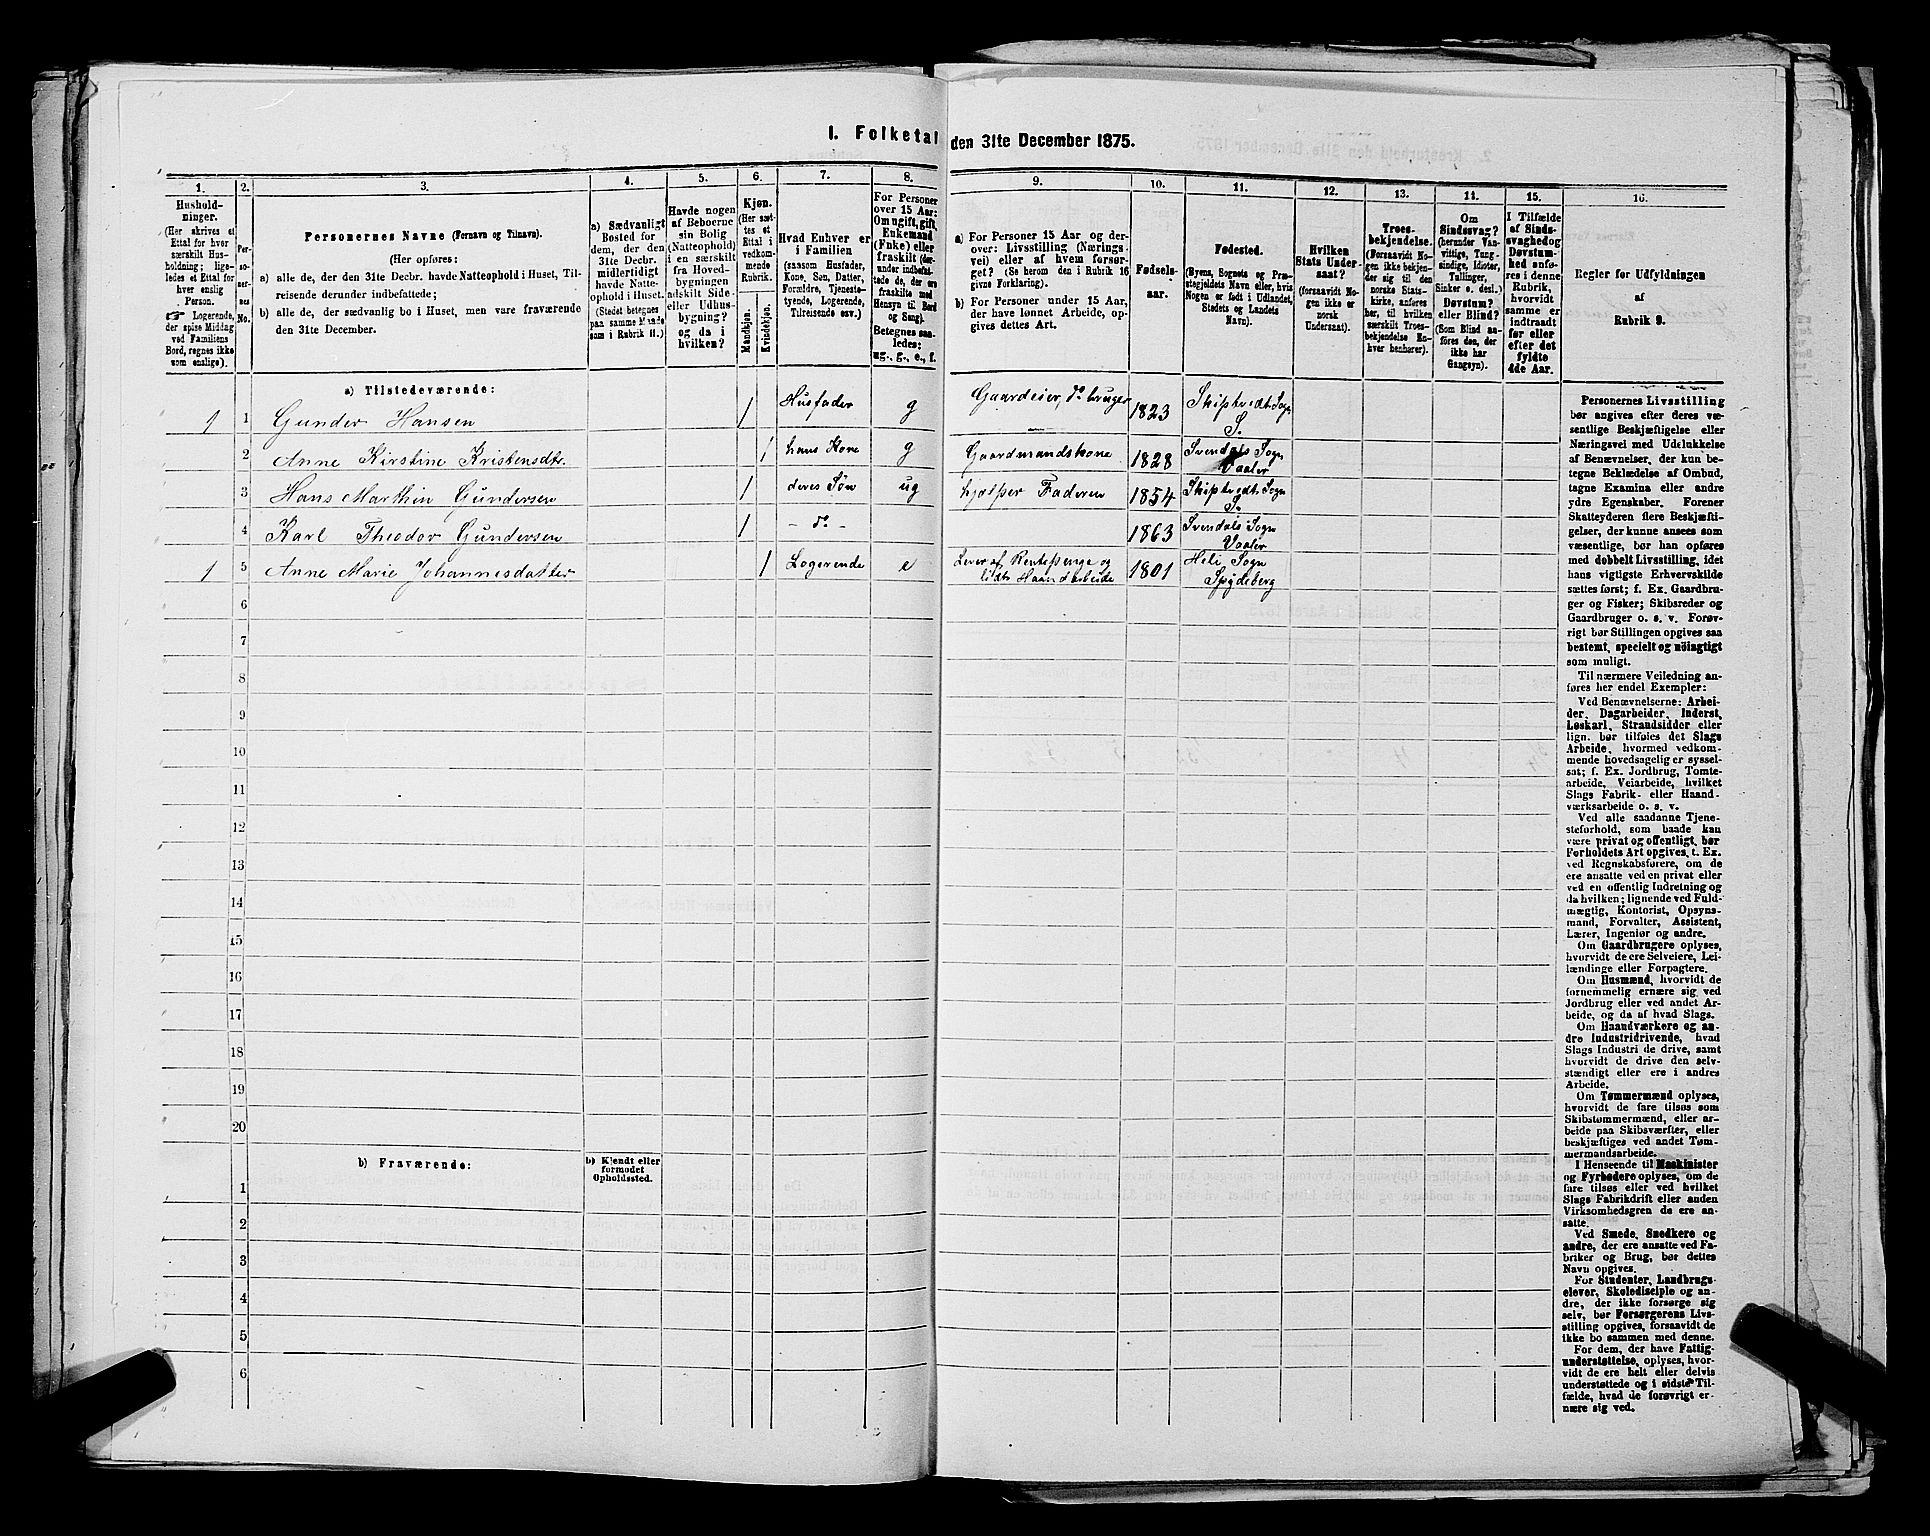 I. Folketal den 31te December 1875.
1. 2. 3. 4. 5. 6. 7. 8. 9. 10. 11. 12. 13. 14. 15. 16.
Hushold-
ninger.
(Her skrives et
Ettal for hver
særskilt Hus-
holdning; lige-
ledes et Ettal for
hver enslig
Person.
☞ Logerende,
der spise Middag
ved Familiens
Bord, regnes ikke
som enslige).
Per-
so-
ner-
nes
No.
Personernes Navne (Fornavn og Tilnavn).
(Her opføres:
a) alle de, der den 31te Decbr. havde Natteophold i Huset, Til-
reisende derunder indbefattede;
b) alle de, der sædvanlig bo i Huset, men vare fraværende
den 31te December.
a) Sædvanligt
Bosted for
dem, der den
31te Decbr.
midlertidigt
havde Natte-
ophold i Huset.
(Stedet betegnes
paa samme Maade
som i Rubrik 11.)
Havde nogen
af Beboerne
sin Bolig
(Natteophold)
i en særskilt
fra Hoved-
bygningen
adskilt Side-
eller Udhus-
bygning?
og da i
hvilken?
Kjøn.
(Her sæt-
tes et
Ettal i
vedkom-
mende
Rubrik.)
Mandkjøn.
Kvindekjøn.
Hvad Enhver er
i Familien
(saasom Husfader,
Kone, Søn, Datter,
Forældre, Tjeneste-
tyende, Logerende,
Tilreisende osv.)
For Personer
over 15 Aar:
Om ugift, gift,
Enkemand
(Enke) eller
fraskilt (der-
under indbefat-
tede de, der ere
fraskilte med
Hensyn til Bord
og Seng).
Betegnes saa-
ledes:
ug., g., e., f.
a) For Personer 15 Aar og der-
over: Livsstilling (Nærings-
vei) eller af hvem forsør-
get? (Se herom den i Rubrik 16
givne Forklaring).
b) For Personer under 15 Aar,
der have lønnet Arbeide, op-
gives dettes Art.
Fødsels-
aar.
Fødested.
(Byens, Sognets og Præ-
stegjeldets Navn eller, hvis
Nogen er født i Udlandet,
Stedets og Landets
Navn).
Hvilken
Stats Under-
saat?
(forsaavidt No-
gen ikke er
norsk
Undersaat).
Troes-
bekjendelse.
(Forsaavidt No-
gen ikke bekjen-
der sig til den
norske Stats-
kirke, anføres
her, til hvilken
særskilt Troes-
bekjendelse En-
hver henhører).
Om
Sindssvag?
(herunder Van-
vittige, Tung-
sindige, Idioter,
Tullinger,
Sinker o. desl.)
Døvstum?
eller Blind?
(Som Blind an-
føres den, der
ikke har
Gangsyn).
I Tilfælde
af Sinds-
svaghed og
Døvstum-
hed anfø-
res i denne
Rubrik,
hvorvidt
samme er
indtraadt
før eller
efter det
fyldte
4de Aar.
Regler for Udfyldningen
af
Rubrik 9.
a) Tilstedeværende:
1 1 Gunder Hansen 1 Husfader g Gaardeier, do bruger 1823 Skiptvedt Sogn
S.
2 Anne Kirstine Kristensdtr. 1 hans Kone g Gaardmandskone 1828 Svendals Sogn
Vaaler
3 Hans Marthin Gundersen 1 deres Søn ug hjelper Faderen 1854 Skiptvedt Sogn
S.
4 Karl Theodor Gundersen 1 - do - 1863 Svendals Sogn
Vaaler
1 5 Anne Marie Johannesdatter 1 Logerende e Lever af Rentepenge og 1801 Heli Sogn
lidt Haandarbeide Spydeberg
6
7
8
9
10
11
12
13
14
15
16
17
18
19
20
b) Fraværende:
b) Kjendt eller
formodet
Opholdssted.
1
2
3
4
5
6
Personernes Livsstilling
bør angives efter deres væ-
sentlige Beskjæftigelse eller
Næringsvei med Udelukkelse
af Benævnelser, der kun be-
tegne Beklædelse af Ombud,
tagne Examina eller andre
ydre Egenskaber. Forener
Skatteyderen flere Beskjæfti-
gelser, der kunne ansees som
væsentlige, bør han opføres
med dobbelt Livsstilling, idet
hans vigtigste Erhvervskilde
sættes først; f. Ex. Gaardbru-
ger og Fisker; Skibsreder og
Gaardbruger o. s. v. Forøv-
rigt bør Stillingen opgives saa
bestemt, specielt og nöiagtigt
som muligt.
Til nærmere Veiledning an-
føres her endel Exempler:
Ved Benævnelserne: Arbei-
der, Dagarbeider, Inderst,
Løskarl, Strandsidder eller
lign. bør tilføies det Slags
Arbeide, hvormed vedkom-
mende hovedsagelig er syssel-
sat; f. Ex. Jordbrug, Tomte-
arbeide, Veiarbeide, hvilket
Slags Fabrik- eller Haand-
værksarbeide o. s. v.
Ved alle saadanne Tjene-
steforhold, som baade kan
være privat og offentligt, bør
Forholdets Art opgives, t. Ex.
ved Regnskabsførere, om de
ere ansatte ved en privat eller
ved en offentlig Indretning og
da hvilken; lignende ved Fuld-
mægtig, Kontorist, Opsyns-
mand, Forvalter, Assistent,
Lærer, Ingeniør og andre.
Om Gaardbrugere oplyses,
hvorvidt de ere Selveiere, Lei-
lændinge eller Forpagtere.
Om Husmænd, hvorvidt de
fornemmelig ernære sig ved
Jordbrug eller ved andet Ar-
beide, og da af hvad Slags.
Om Haandværkere og an-
dre Industridrivende, hvad
Slags Industri de drive, samt
hvorvidt de drive den selv-
stændigt eller ere i andres
Arbeide.
Om Tømmermænd oplyses,
hvorvidt de fare tilsøs som
Skibstømmermænd, eller ar-
beide paa Skibsværfter, eller
beskjæftiges ved andet Tøm-
mermandsarbeide.
I Henseende til Maskinister
og Fyrbødere oplyses, om de
fare tilsøs eller ved hvilket
Slags Fabrikdrift eller anden
Virksomhedsgren de ere an-
satte.
Ved Smede, Snedkere og
andre, der ere ansatte ved Fa-
briker og Brug, bør dettes
Navn opgives.
For Studenter, Landbrugs-
elever, Skoledisciple og an-
dre, der ikke forsørge sig
selv, bør Forsørgerens Livs-
stilling opgives, forsaavidt de
ikke bo sammen med denne.
For dem, der have Fattig-
understøttelse, oplyses, hvor-
vidt de ere helt eller delvis
understøttede og i sidste Til-
fælde, hvad de forøvrigt er-
nære sig ved.